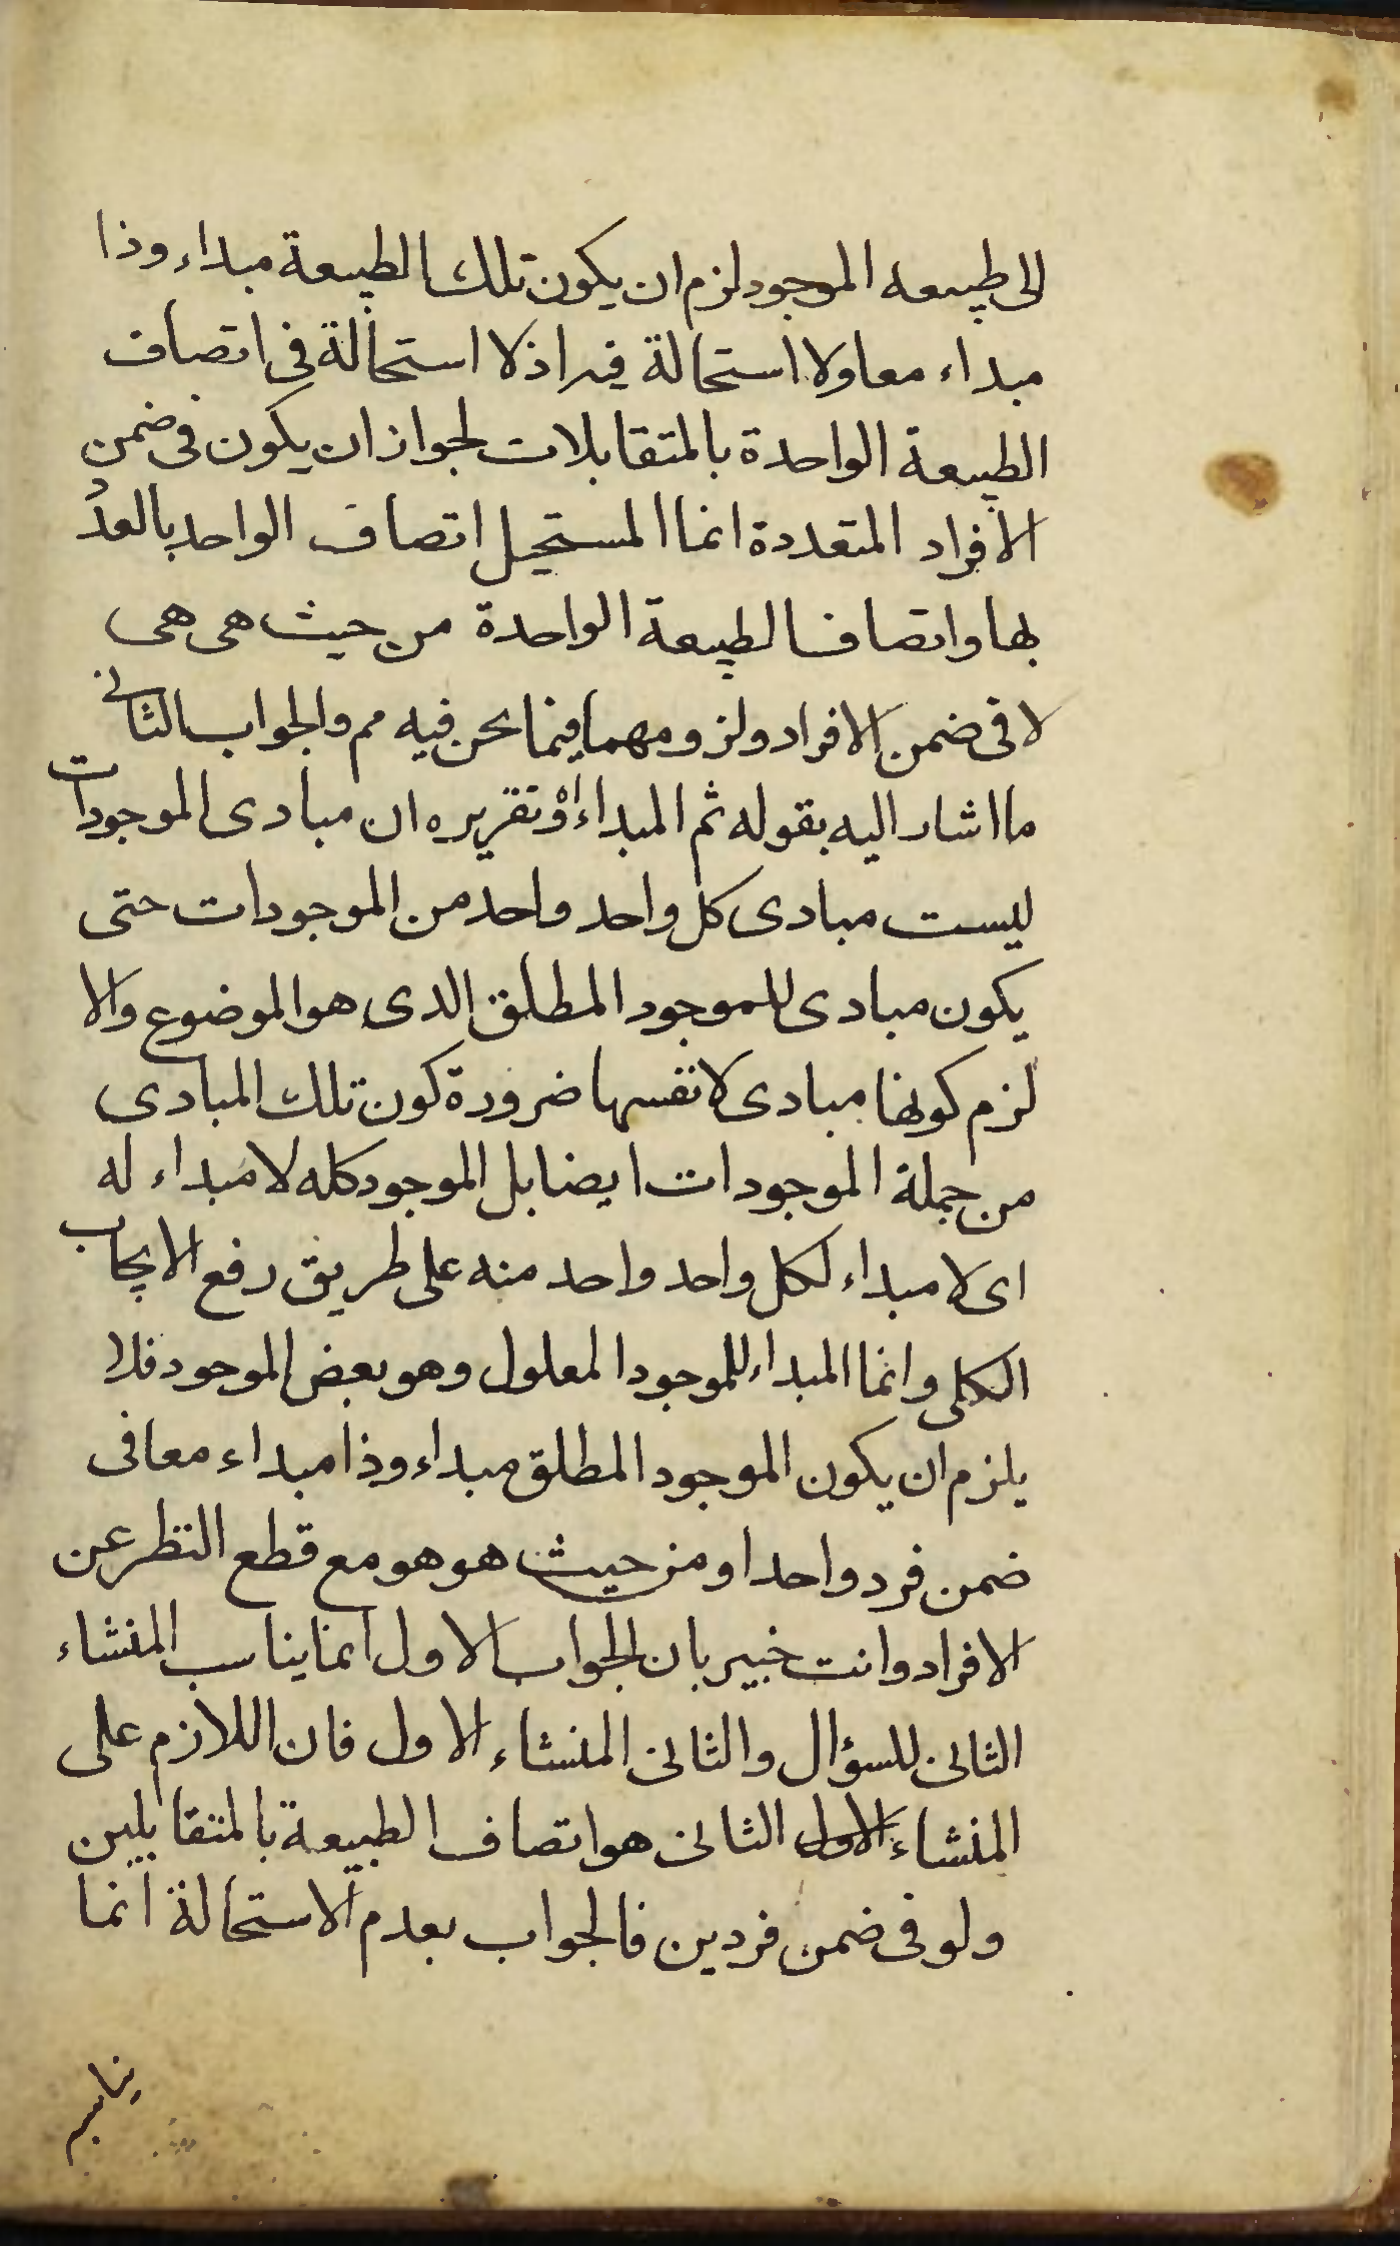 الى طبيعه الموجود لزم ان يكون تلك الطبيعة مبداء وذا
مبداء معا ولا استحالة فيه اذ لا استحالة فى اتصاف
الطبيعة الواحدة بالمتقابلات لجواز ان يكون فى ضمن
الافراد المتعددة انما المستحيل اتصاف الواحد بالعدد
بها واتصاف الطبيعة الواحدة من حيث هى هى
لا فى ضمن الافراد ولزومهما فيما نحن فيه مم والجواب الثانى
ما اشار اليه بقوله ثم المبداء اه وتقريره ان مبادى الموجودات
ليست مبادى كل واحد واحد من الموجودات حتى
يكون مبادى للموجود المطلق الذى هو الموضوع والا
لزم كونها مبادى لانفسها ضرورة كون تلك المبادى
من جملة الموجودات ايضا بل الموجود كله لا مبداء له
اى لا مبداء لكل واحد واحد منه على طريق رفع الايجاب
الكلى وانما المبداء للموجود المعلول وهو بعض الموجود فلا
يلزم ان يكون الموجود المطلق مبداء وذا مبداء معا فى
ضمن فرد واحد او من حيث هو هو مع قطع النظر عن
الافراد وانت خبير بان الجواب الاول انما يناسب المنشاء
الثانى للسؤال والثانى المنشاء الاول فان اللازم على
المنشاء الاول الثانى هو اتصاف الطبيعة بالمتقابلين
ولو فى ضمن فردين فالجواب بعدم الاستحالة انما
يناسب